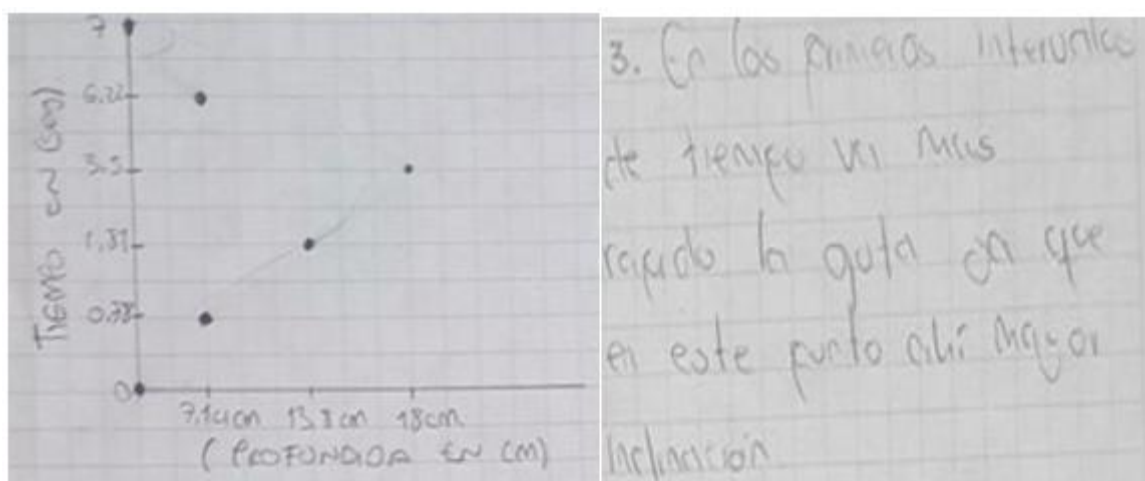 7
6.22
3.5
1.31
0.78
0
TIEMPO EN (seg)
7,14cm 13,8cm 18cm
(PROFUNDIDA EN CM)
3. En los primeros intervalos
de tiempo va mas
rapido la gota ya que
en este punto ahi mayor
inclinacion